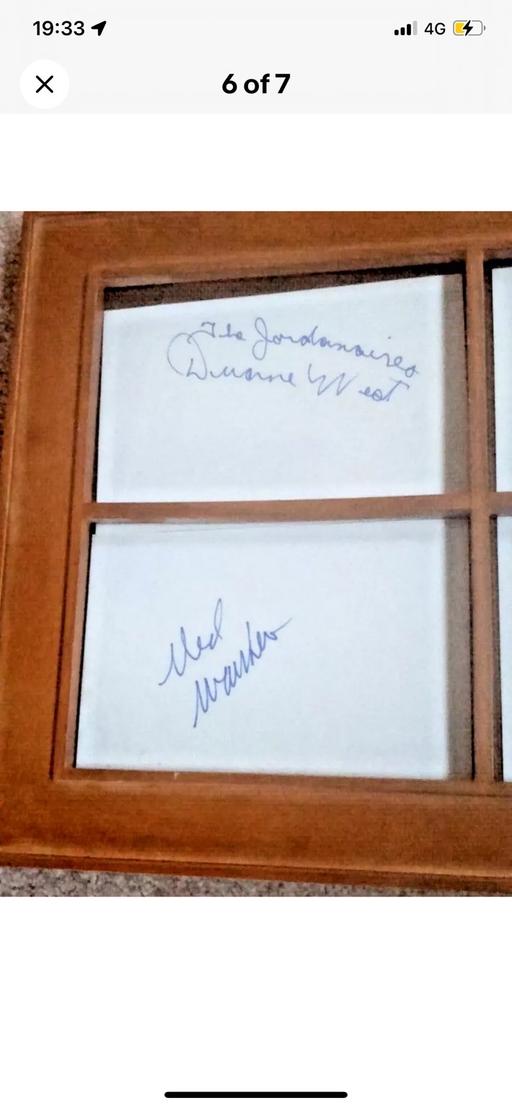 19:33
4G
6 of 7
The Jordanaires
Duane West